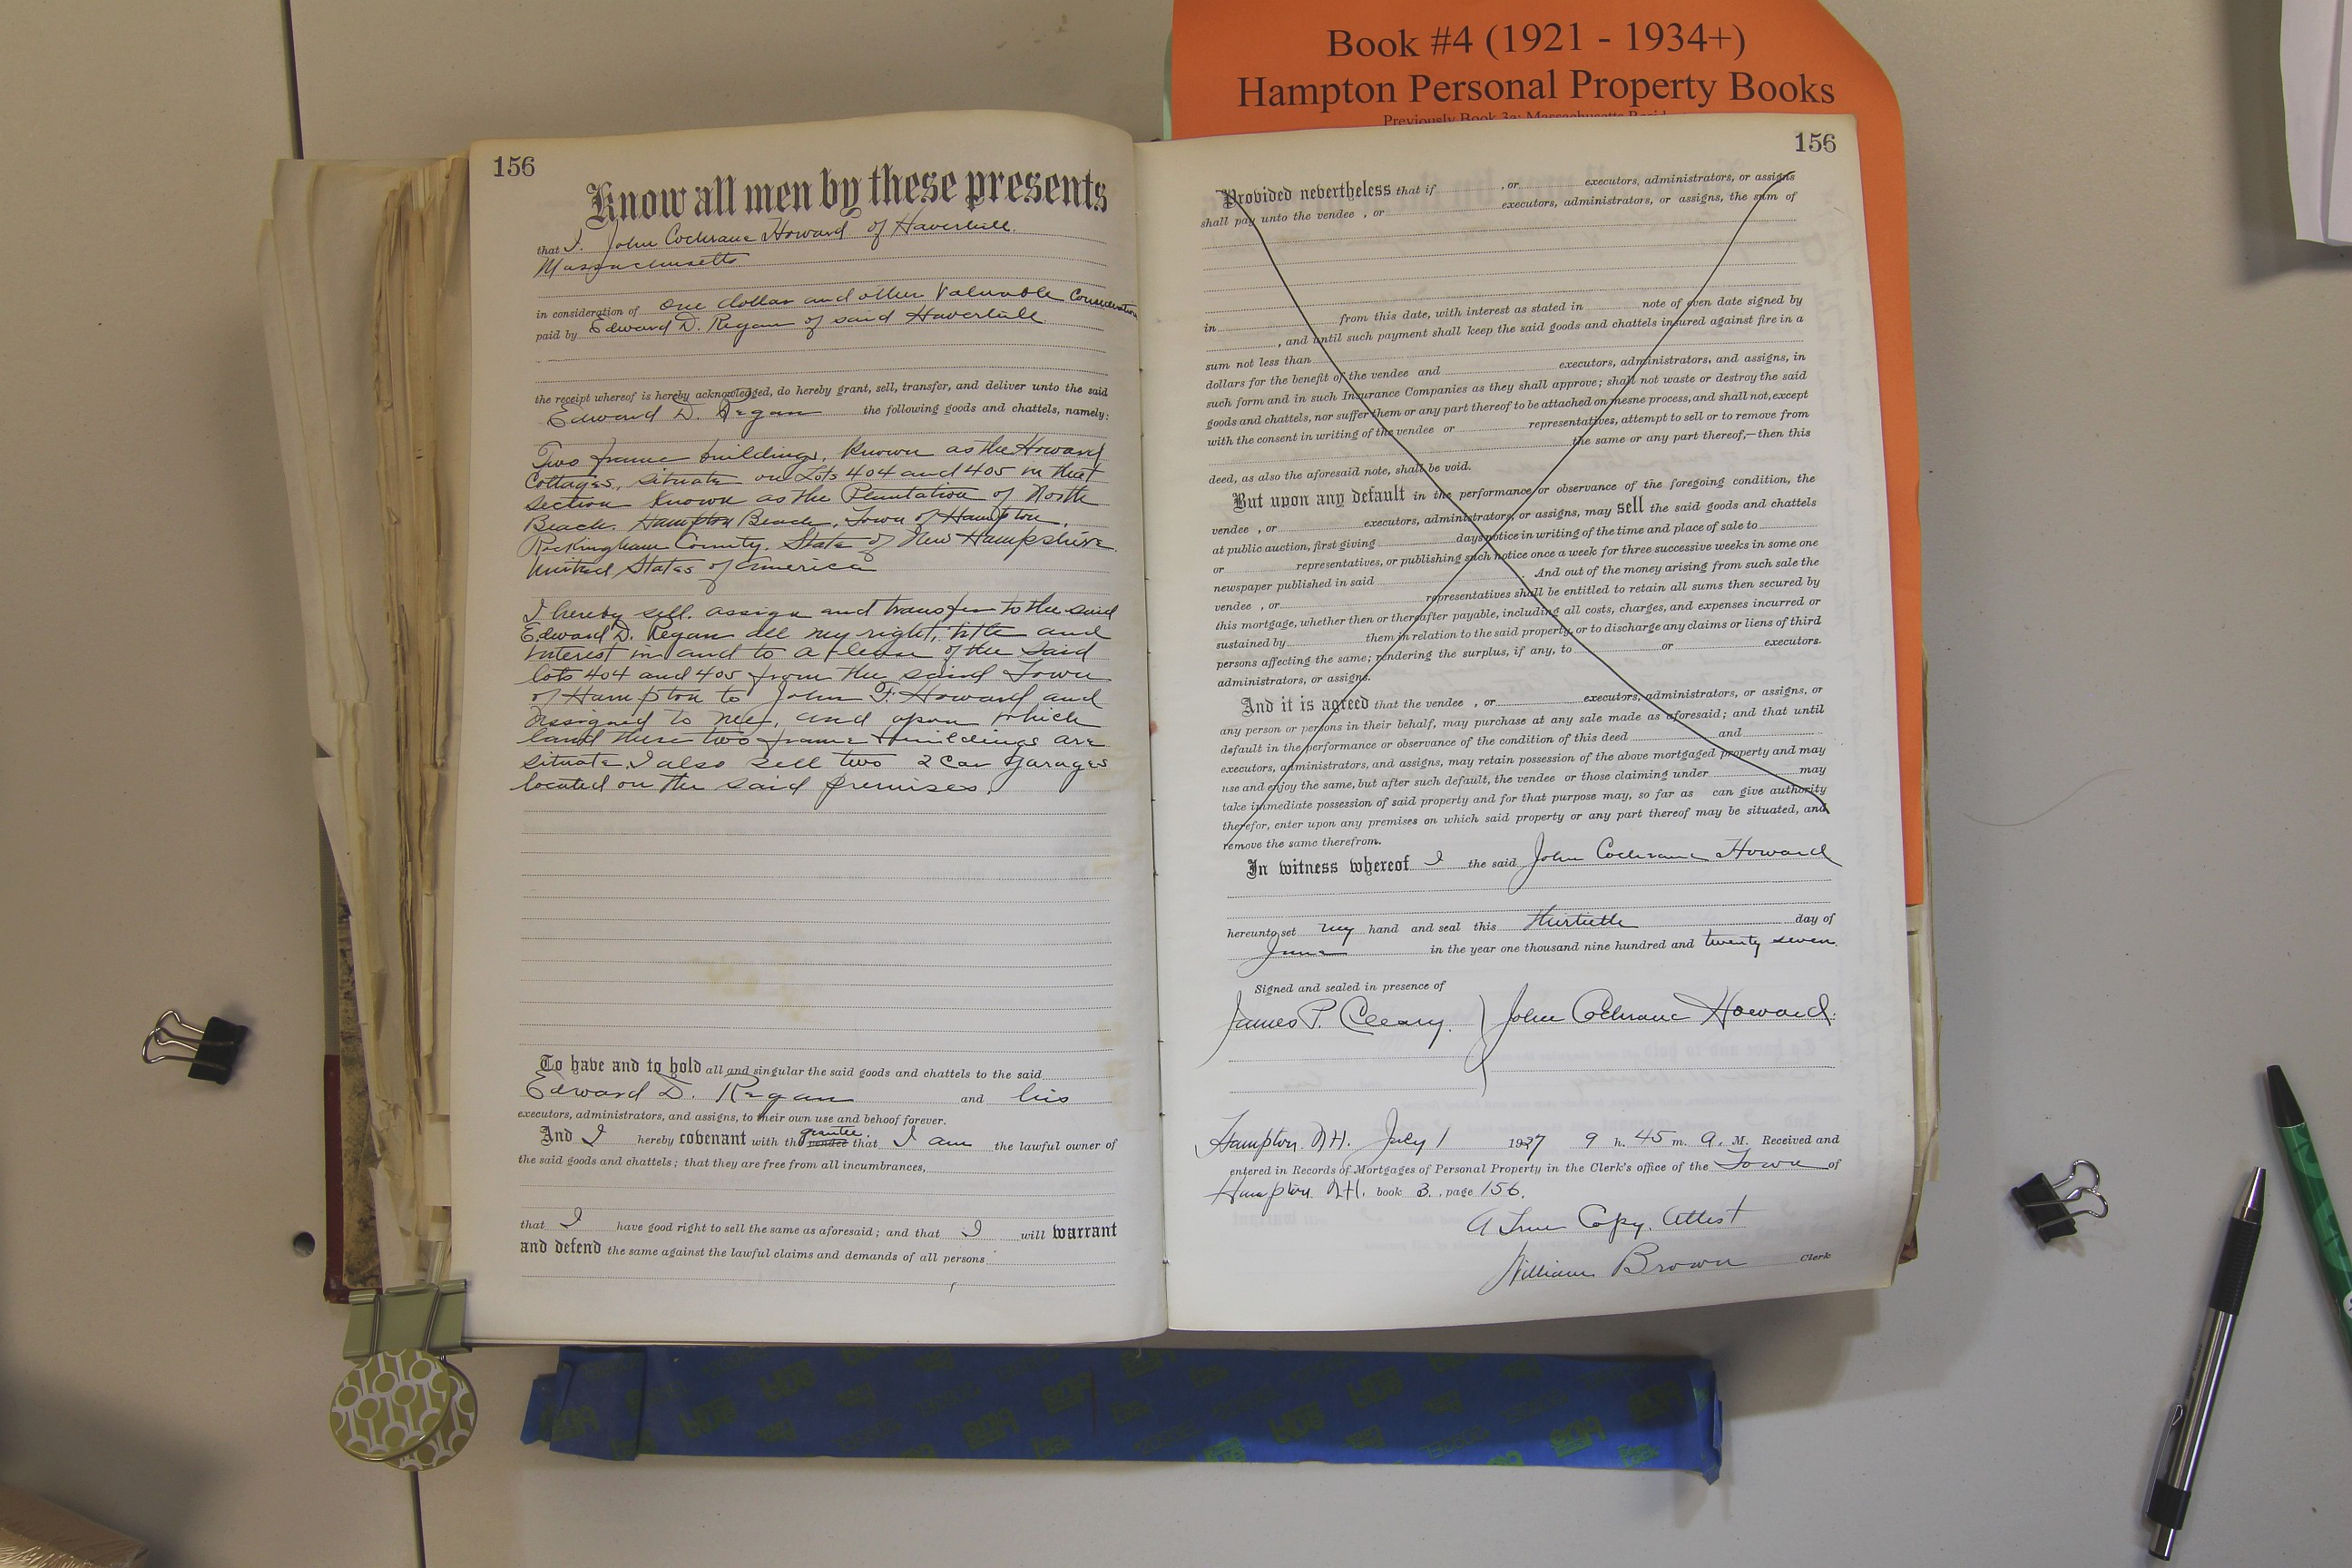 Book #4 (1921 - 1934+)
Hampton Personal Property Books
156
Know all men by these presents
that I. John Cochrane Howard of Haverhill.
Massachusetts
in consideration of one dollar and other Valuable Consideration
paid by Edward D. Regan of said Haverhill
the receipt whereof is hereby acknowledged, do hereby grant, sell, transfer, and deliver unto the said
Edward D. Regan the following goods and chattels, namely:
Two frame buildings, Known as the Howard
Cottages, situate on Lots 404 and 405 in that
section Known as the Plantation of North
Beach. Hampton Beach, Town of Hampton,
Rockingham County. State of New Hampshire
United States of America
I hereby sell. assign and transfer to the said
Edward D. Regan all my right, title and
interest in and to a lease of the said
lots 404 and 405 from the said Town
of Hampton to John F. Howard and
assigned to me, and upon which
land these two frame buildings are
situate. I also sell two 2 car garages
located on the said premises.
To have and to hold all and singular the said goods and chattels to the said
Edward D. Regan and his
executors, administrators, and assigns, to their own use and behoof forever.
grantee
And I hereby covenant with the vendee that I am the lawful owner of
the said goods and chattels; that they are free from all incumbrances,
that I have good right to sell the same as aforesaid; and that I will warrant
and defend the same against the lawful claims and demands of all persons
156
Provided nevertheless that if , or executors, administrators, or assigns
shall pay unto the vendee , or executors, administrators, or assigns, the sum of
in from this date, with interest as stated in note of even date signed by
, and until such payment shall keep the said goods and chattels insured against fire in a
sum not less than
dollars for the benefit of the vendee and executors, administrators, and assigns, in
such form and in such Insurance Companies as they shall approve; shall not waste or destroy the said
goods and chattels, nor suffer them or any part thereof to be attached on mesne process, and shall not, except
with the consent in writing of the vendee or representatives, attempt to sell or to remove from
the same or any part thereof,—then this
deed, as also the aforesaid note, shall be void.
But upon any default in the performance or observance of the foregoing condition, the
vendee , or executors, administrators, or assigns, may sell the said goods and chattels
at public auction, first giving days notice in writing of the time and place of sale to
or representatives, or publishing such notice once a week for three successive weeks in some one
newspaper published in said . And out of the money arising from such sale the
vendee , or representatives shall be entitled to retain all sums then secured by
this mortgage, whether then or thereafter payable, including all costs, charges, and expenses incurred or
sustained by them in relation to the said property, or to discharge any claims or liens of third
persons affecting the same; rendering the surplus, if any, to or executors.
administrators, or assigns.
And it is agreed that the vendee , or executors, administrators, or assigns, or
any person or persons in their behalf, may purchase at any sale made as aforesaid; and that until
default in the performance or observance of the condition of this deed and
executors, administrators, and assigns, may retain possession of the above mortgaged property and may
use and enjoy the same, but after such default, the vendee or those claiming under may
take immediate possession of said property and for that purpose may, so far as can give authority
therefor, enter upon any premises on which said property or any part thereof may be situated, and
remove the same therefrom.
In witness whereof I the said John Cochrane Howard
hereunto set my hand and seal this thirtieth day of
June in the year one thousand nine hundred and twenty seven.
Signed and sealed in presence of
James P. Cleary. John Cochrane Howard.
Hampton. N.H. July 1 1927 9 h. 45 m. a. M. Received and
entered in Records of Mortgages of Personal Property in the Clerk's office of the Town of
Hampton. N.H. book 3. , page 156.
A True Copy. Attest
William Brown Clerk